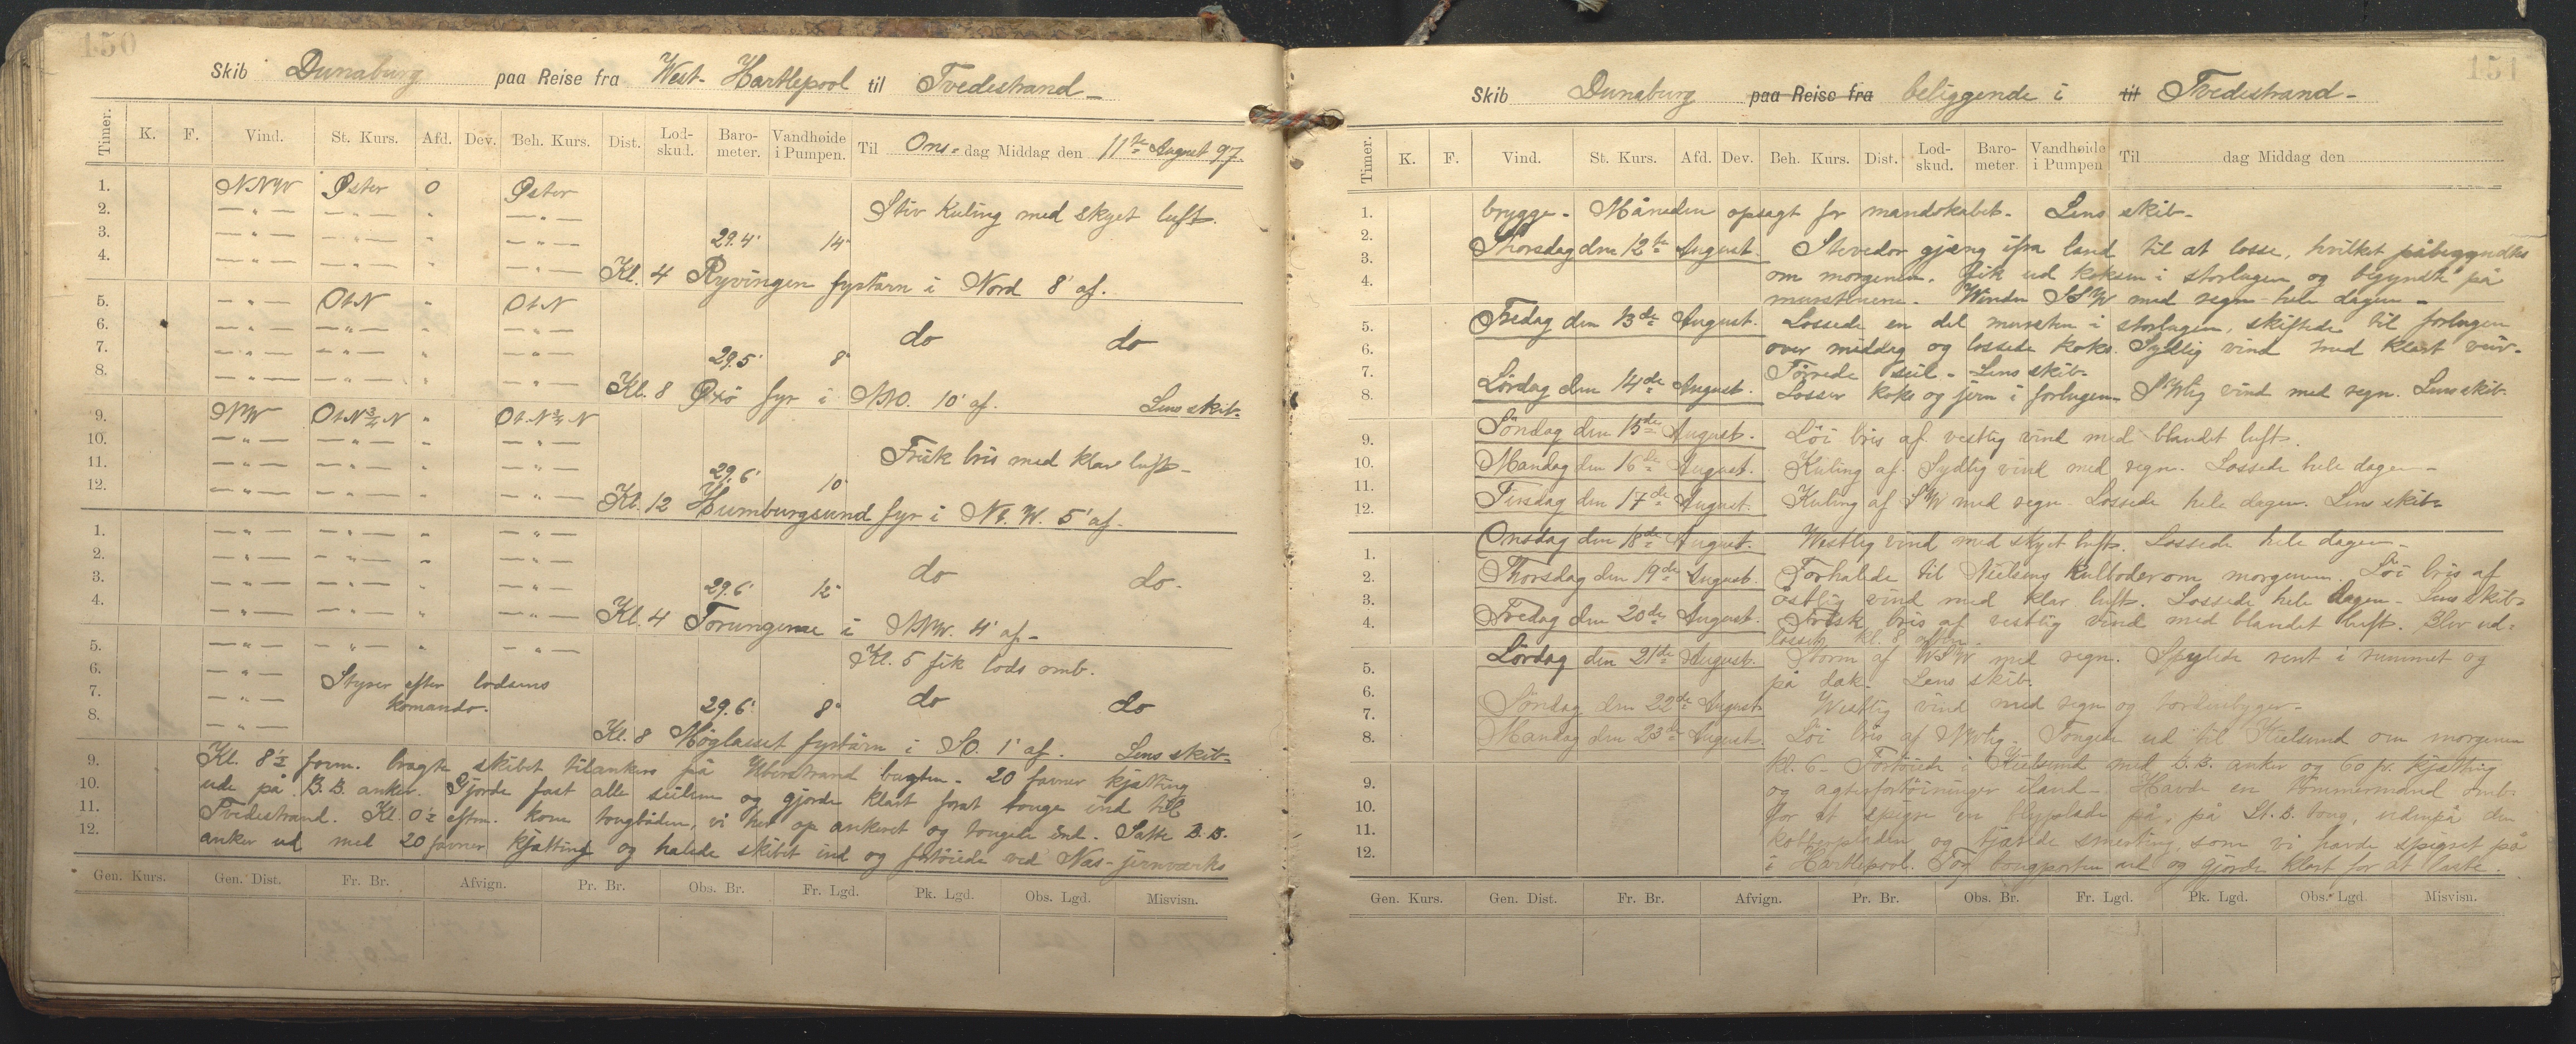 150
Skib Dunaburg paa Reise fra West-Hartlepool til Tvedestrand
Timer. K. F. Vind. St. Kurs. Afd. Dev. Beh. Kurs. Dist. Lod-skud. Baro-meter. Vandhøide i Pumpen. Til Ons-dag Middag den 11te August 97.
1. NNW Øster 0 Øster
2. —"— —"— " —"— Stiv Kuling med skyet luft.
3. —"— —"— " —"— 29.4' 14"
4. —"— —"— " —"— Kl. 4 Ryvingen fyrtårn i Nord 8' af.
5. —"— OtN " OtN
6. —"— —"— " —"— do do
7. —"— —"— " —"— 29.5' 8"
8. —"— —"— " —"— Kl. 8 Oxö fyr i NNO. 10' af. Lens skib-
9. NW OtN¾N " OtN¾N
10. —"— —"— " —"— Frisk bris med klar luft-
11. —"— —"— " —"— 29.6' 10"
12. —"— —"— " —"— Kl. 12 Humburgsund fyr i Nt.W. 5' af.
1. —"— —"— " —"—
2. —"— —"— " —"— do do.
3. —"— —"— " —"— 29.6' 12"
4. —"— —"— " —"— Kl. 4 Torungerne i NNW. 4' af-
5. —"— —"— " —"— Kl. 5 fik lods omb.
6. —"— Styrer efter lodsens
7. —"— komando. 29.6' 8" do do
8. —"— Kl. 8 Møglaeset fyrtårn i SO. 1' af. Lens skib-
9. Kl. 8½ form. bragte skibet tilankers på bugten. 20 favner kjætting
10. ude på B.B. anker. Gjorde fast alle seilene og gjorde klart forat touge ind til
11. Tvedestrand. Kl. 0½ eftm. kom tougbåden, vi hev op ankeret og tougede ind. Satte B.B.
12. anker ud med 20 favner kjætting og halede skibet ind og fortöiede ved Næs-jernværks
Gen. Kurs. Gen. Dist. Fr. Br. Afvign. Pr. Br. Obs. Br. Fr. Lgd. Pk. Lgd. Obs. Lgd. Misvisn.
151
Skib Dunaburg paa Reise fra beliggende i til Tvedestrand-
Timer. K. F. Vind. St. Kurs. Afd. Dev. Beh. Kurs. Dist. Lod-skud. Baro-meter. Vandhøide i Pumpen Til dag Middag den
1. brygge. Måneden opsagt for mandskabet. Lens skib-
2. Thorsdag den 12te August. Stevedor gjæng ifra land til at losse, hvilket påbegyndtes
3. om morgenen. Fik ud koksen i storlugen og begyndte på
4. murstenene. Vinden SSW med regn hele dagen-
5. Fredag den 13de August. Lossede en del mursten i storlugen, skiftede til forlugen
6. over middag og lossede koks. Sydlig vind med klart veir-
7. Törrede seil. Lens skib-
8. Lördag den 14de August. Losser koks og jern i forlugen. SWlig vind med regn. Lens skib-
9. Söndag den 15de August. Löi bris af vestlig vind med blandet luft.
10. Mandag den 16de August. Kuling af Sydlig vind med regn. Lossede hele dagen-
11. Tirsdag den 17de August. Kuling af SW med regn. Lossede hele dagen. Lens skib-
12.
1. Onsdag den 18de August. Westlig vind med skyet luft. Lossede hele dagen-
2. Thorsdag den 19de August. Forhalede til Nielsens Kulboder om morgenen. Löi bris af
3. östlig vind med klar luft. Lossede hele dagen- Lens skib-
4. Fredag den 20de August. Frisk bris af vestlig vind med blandet luft. Blev ud-
losset kl. 8 aften.
5. Lördag den 21de August. Storm af WSW med regn. Spylede rent i rummet og
6. på dæk. Lens skib.
7. Söndag den 22de August. Westlig vind med regn og tordenbyger-
8. Mandag den 23de August. Löi bris af NWlig. Tougede ud til Kielsund om morgenen
kl. 6- Fortöiede i Kielsund med B.B. anker og 60 fv. kjætting
9. og agterfortöininger iland-. Havde en tömmermand omb-
10. for at spigre en blyplade på, på St.B. boug, udenpå den
11. og tjærede smerting, som vi havde spigret på
12. i Hartlepool. Tog bougporten ud og gjorde klart for at laste.
Gen. Kurs. Gen. Dist. Fr. Br. Afvign. Pr. Br. Obs. Br. Fr. Lgd. Pk. Lgd. Obs. Lgd. Misvisn.